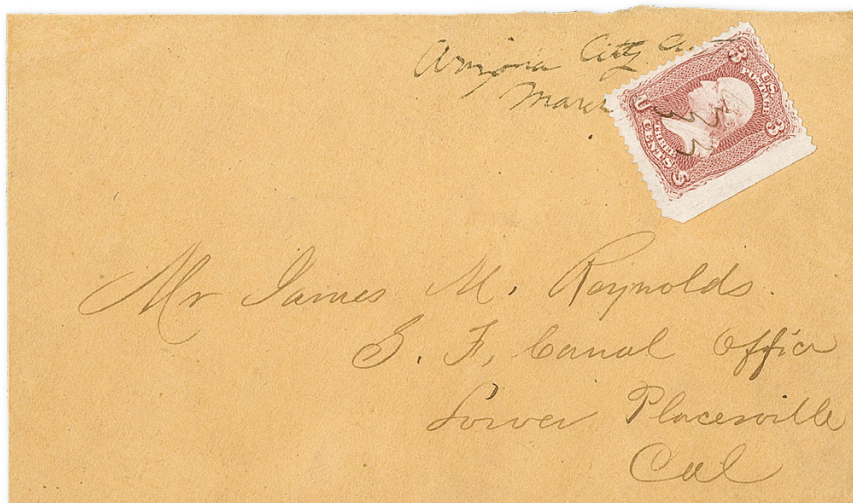 Arizona City A.
March
3 U.S. POSTAGE 3
U THREE CENTS S
Mr James M. Reynolds.
S. F, Canal Office
Lower Placerville
Cal